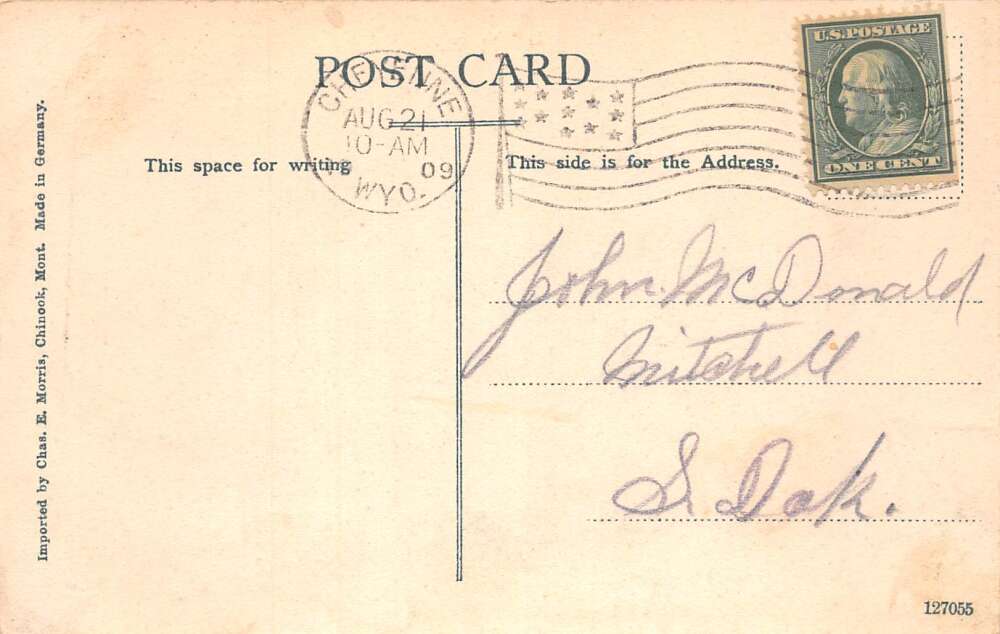 POST CARD
CHEYENNE
AUG 21
10-AM
09
WYO.
U.S. POSTAGE
ONE CENT
This space for writing
This side is for the Address.
John McDonald
Mitchell
S. Dak.
Imported by Chas. E. Morris, Chinook, Mont. Made in Germany.
127055